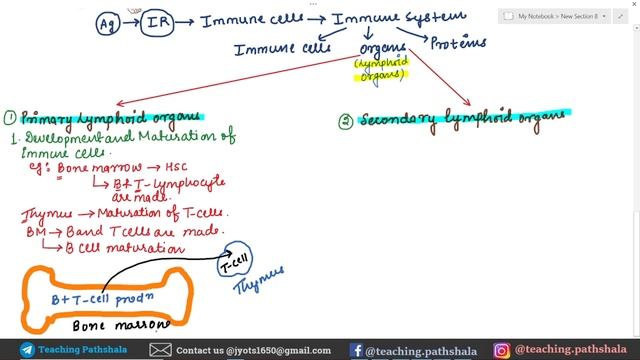 My Notebook > New Section 8
Ag → IR → Immune cells → Immune system
Immune cells organs Proteins
(Lymphoid organs)
① Primary Lymphoid organs
1. Development and Maturation of
Immune cells.
eg: Bone marrow → HSC
B + T - lymphocyte
are made.
Thymus → Maturation of T-cells.
BM → B and T cells are made.
B cell maturation
B + T-cell prodⁿ
Bone marrow
T-cell
Thymus
② Secondary lymphoid organs
Teaching Pathshala
Contact us @jyots1650@gmail.com
@teaching.pathshala
@teaching.pathshala